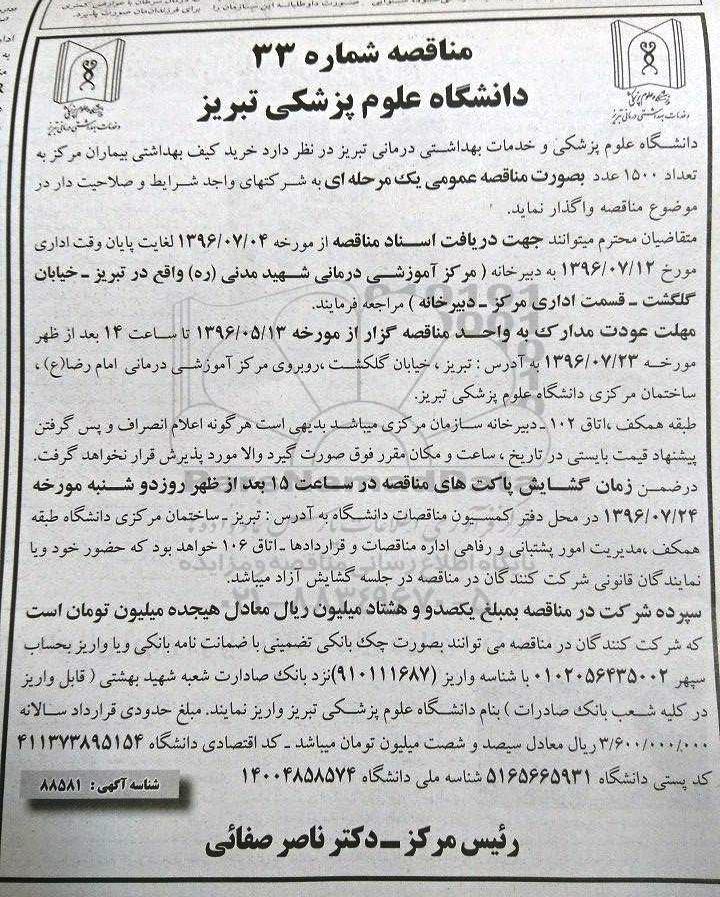 مناقصه شماره ۳۳
دانشگاه علوم پزشکی تبریز
دانشگاه علوم پزشکی
وخدمات بهداشتی درمانی تبریز
دانشگاه علوم پزشکی
وخدمات بهداشتی درمانی تبریز
دانشگاه علوم پزشکی و خدمات بهداشتی درمانی تبریز در نظر دارد خرید کیف بهداشتی بیماران مرکز به
تعداد ۱۵۰۰ عدد بصورت مناقصه عمومی یک مرحله ای به شرکتهای واجد شرایط و صلاحیت دار در
موضوع مناقصه واگذار نماید.
متقاضیان محترم میتوانند جهت دریافت اسناد مناقصه از مورخه ۱۳۹۶/۰۷/۰۴ لغایت پایان وقت اداری
مورخ ۱۳۹۶/۰۷/۱۲ به دبیرخانه ( مرکز آموزشی درمانی شهید مدنی (ره) واقع در تبریز ـ خیابان
گلگشت ـ قسمت اداری مرکز ـ دبیرخانه ) مراجعه فرمایند.
مهلت عودت مدارک به واحد مناقصه گزار از مورخه ۱۳۹۶/۰۵/۱۳ تا ساعت ۱۴ بعد از ظهر
مورخه ۱۳۹۶/۰۷/۲۳ به آدرس : تبریز ، خیابان گلگشت ،روبروی مرکز آموزشی درمانی امام رضا(ع) ،
ساختمان مرکزی دانشگاه علوم پزشکی تبریز.
طبقه همکف ،اتاق ۱۰۲ ـ دبیرخانه سازمان مرکزی میباشد بدیهی است هرگونه اعلام انصراف و پس گرفتن
پیشنهاد قیمت بایستی در تاریخ ، ساعت و مکان مقرر فوق صورت گیرد والا مورد پذیرش قرار نخواهد گرفت.
درضمن زمان گشایش پاکت های مناقصه در ساعت ۱۵ بعد از ظهر روزدو شنبه مورخه
۱۳۹۶/۰۷/۲۴ در محل دفتر کمسیون مناقصات دانشگاه به آدرس : تبریز ـ ساختمان مرکزی دانشگاه طبقه
همکف ،مدیریت امور پشتبانی و رفاهی اداره مناقصات و قراردادها ـ اتاق ۱۰۶ خواهد بود که حضور خود ویا
نمایندگان قانونی شرکت کنندگان در مناقصه در جلسه گشایش آزاد میباشد.
سپرده شرکت در مناقصه بمبلغ یکصدو و هشتاد میلیون ریال معادل هیجده میلیون تومان است
که شرکت کنندگان در مناقصه می توانند بصورت چک بانکی تضمینی با ضمانت نامه بانکی ویا واریز بحساب
سپهر ۰۱۰۲۰۵۶۴۳۵۰۰۲ با شناسه واریز (۹۱۰۱۱۱۶۸۷)نزد بانک صادارت شعبه شهید بهشتی ( قابل واریز
در کلیه شعب بانک صادرات ) بنام دانشگاه علوم پزشکی تبریز واریز نمایند. مبلغ حدودی قرارداد سالانه
۳/۶۰۰/۰۰۰/۰۰۰ ریال معادل سیصد و شصت میلیون تومان میباشد ـ کد اقتصادی دانشگاه ۴۱۱۳۷۳۸۹۵۱۵۴
کد پستی دانشگاه ۵۱۶۵۶۶۵۹۳۱ شناسه ملی دانشگاه ۱۴۰۰۴۸۵۸۵۷۴
شناسه آگهی : ۸۸۵۸۱
رئیس مرکز ـ دکتر ناصر صفائی